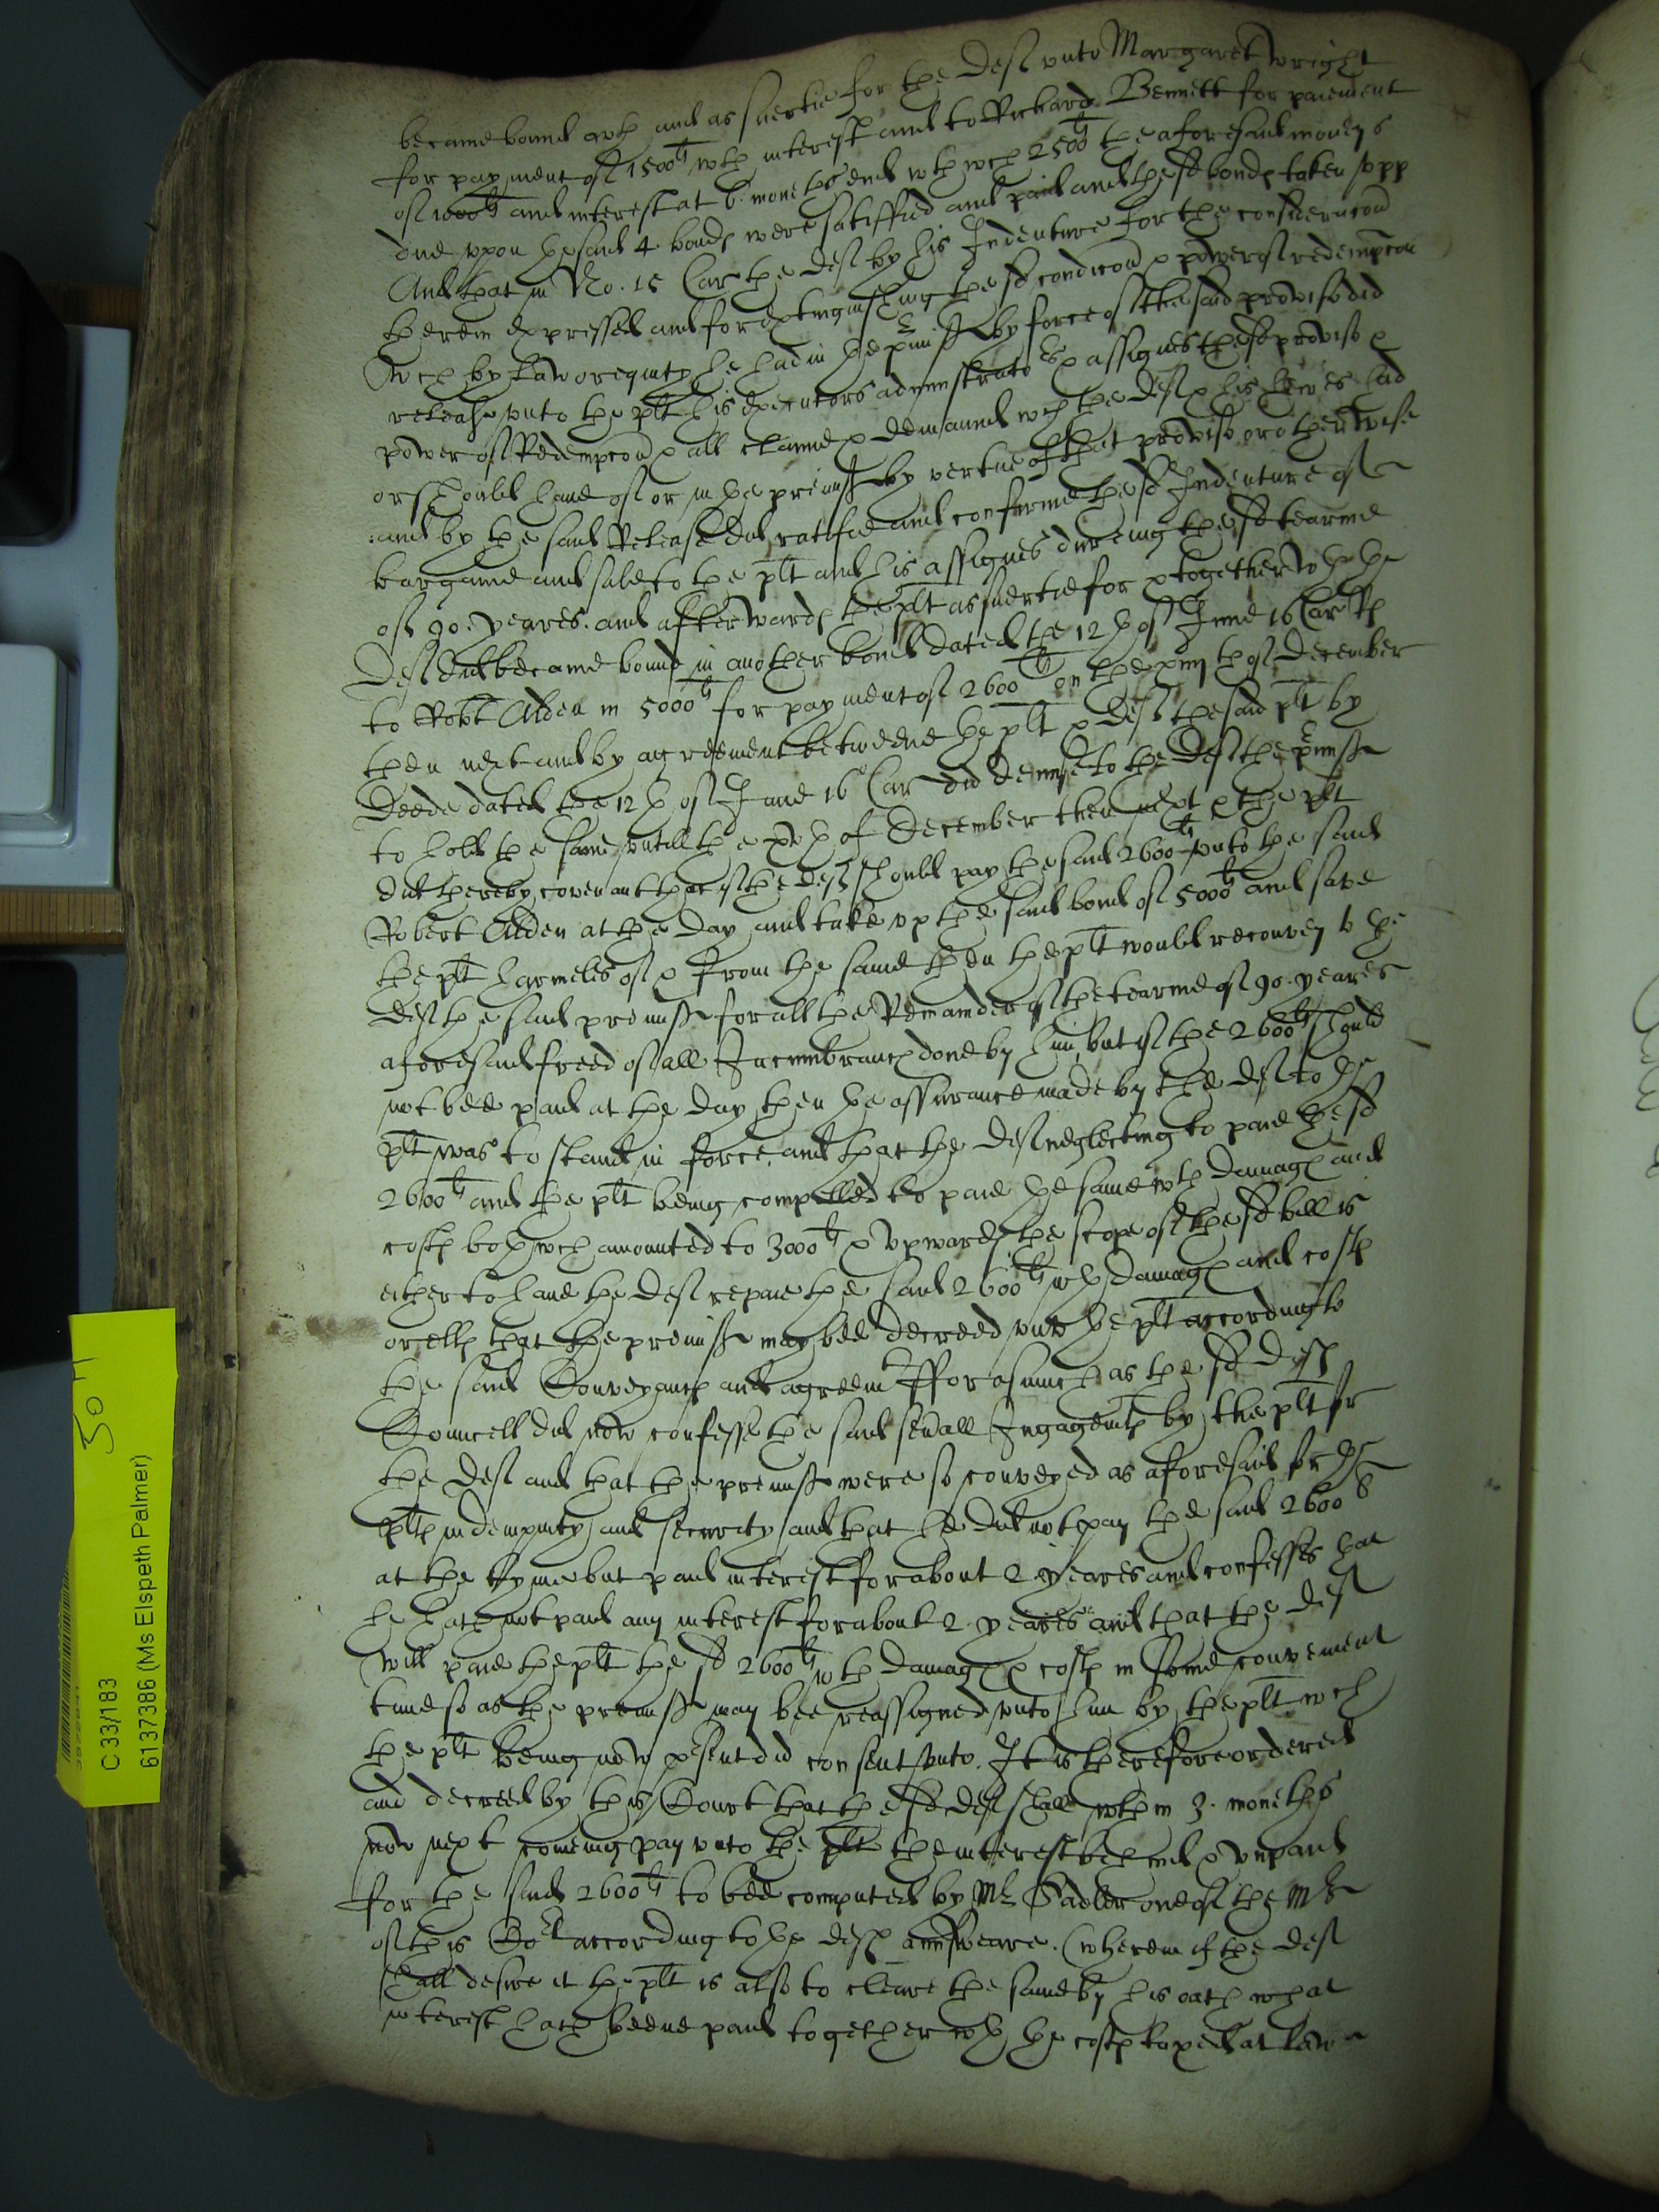 became bound wth and as suertie for the deft unto Margaret Wright
for payment of 1500li wth interest and to Richard Bennett for paiement
of 1000li and interest at 6. moneths end wth wch 2500li the aforesaid moneys
due uppon the said 4 bonds were satisfied and paid and the sd bonds taken upp
And that in No. 15 Car the deft by his Indenture for the consideracon
therein expressed and for extinguishing the sd condicon & power of redempcon
wch by Law or equity he had in the pmiss by force of the said proviso did
release unto the plt his executors administrators & assignes the sd proviso &
power of Redempcon & all claime & demaund wch the deft & his heires had
or should have of or in the premiss by vertue of that proviso or otherwise
and by the said Release did ratifie and confirme the sd Indenture of
bargaine and sale to the plt and his assignes dureing the sd tearme
of 90. yeares. and afterwards the plt as suertie for & together wth the
Deft did became bound in another bond dated the 12th of June 16 Car
to Robt Alden in 5000li for payment of 2600li on the xiiijth of December
then next and by agreement betweene the plt & deft the said plt by
Deede dated the 12th of June 16 Car did demise to the deft the pmiss
to hold the same untill the xvth of December then next & the plt
did thereby covenant that if the deft should pay the said 2600li unto the said
Robert Alden at the day and take up the said bond of 5000li and save
the plt harmeles of & from the same then the plt would reconvey to the
deft the said premiss for all the Remainder of the tearme of 90. yeares
aforesaid freed of all Incumbrances done by him, but if the 2600li should
not bee paid at the day then the assurance made by the deft to the
plt was to stand in force, and that the deft neglecting to paie the sd
2600li and the plt being compelled to paie the same wth damages and
costs both wch amounted to 3000li & upwards the scope of the sd bill is
either to have the deft repaie the said 2600li wth damages and costs
or ells that the premiss may bee decreed unto the plt according to
the said Conveyances and agreemt Fforasmuch as the sd defts
Councell did now confesse the said severall Ingagemts by the plt for
the deft and that the premiss were so conveyed as aforesaid for the
plts indempnity and security and that he did not pay the said 2600li
at the tyme but paid interest for about 2 yeares and confesses that
he hath not paid any interest for about 2. yeares and that the deft
will paie the plt the sd 2600li wth damages & costs in some convenient
time so as the premiss may bee reassigned unto him by the plt wch
the plt being now psent did consent unto. It is therefore ordered
and decreed by this Court that the sd deft shall wthin 3. moneths
now next comeing pay unto the plt the interest behind & unpaid
for the said 2600li to bee computed by Mr Sadler one of the Mrs
of this Cort according to the defts answeare. (wherein if the deft
shall desire it the plt is also to cleare the same by his oath what
interest hath beene paid together wth the costs taxed at Law
30 11
C 33/183
6137386 (Ms Elspeth Palmer)